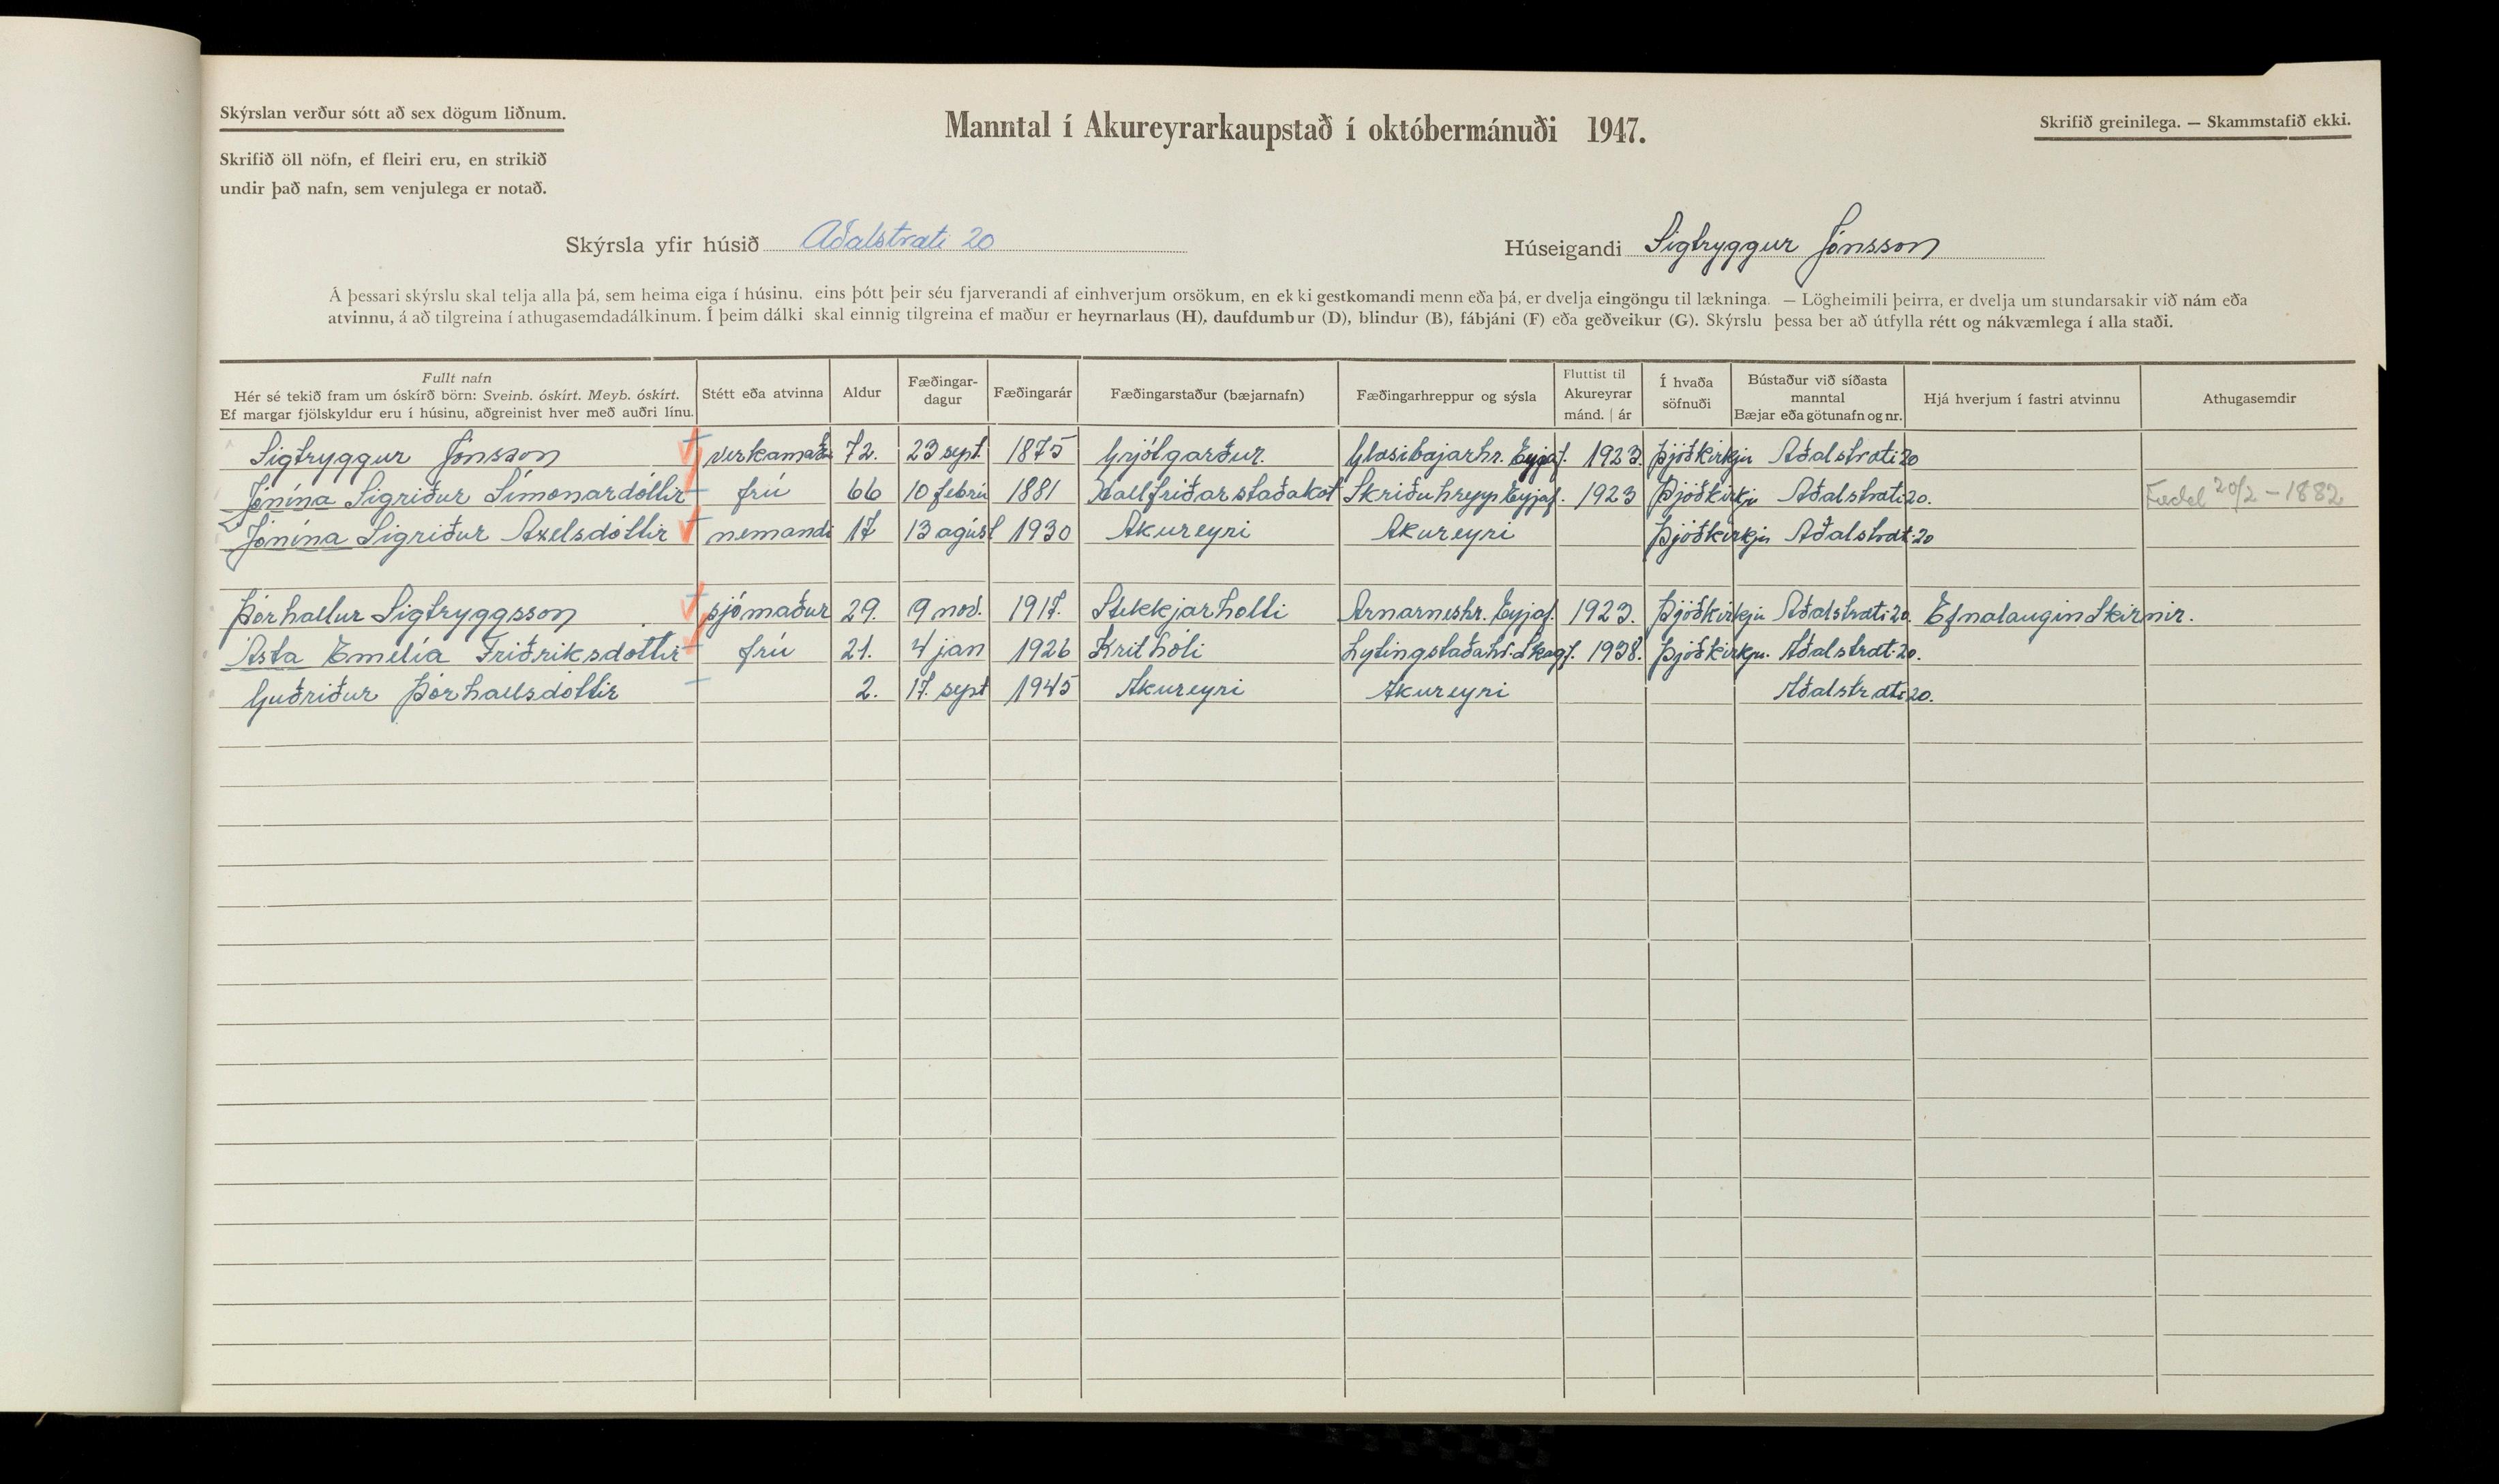 Skýrslan verður sótt að sex dögum liðnum.
Skrifið öll nöfn, ef fleiri eru, en strikið
undir það nafn, sem venjulega er notað.
Manntal í Akureyrarkaupstað í októbermánuði 1947.
Skrifið greinilega. — Skammstafið ekki.
Skýrsla yfir húsið Aðalstræti 20
Húseigandi Sigtryggur Jónsson
Á þessari skýrslu skal telja alla þá, sem heima eiga í húsinu, eins þótt þeir séu fjarverandi af einhverjum orsökum, en ekki gestkomandi menn eða þá, er dvelja eingöngu til lækninga. — Lögheimili þeirra, er dvelja um stundarsakir við nám eða
atvinnu, á að tilgreina í athugasemdadálkinum. Í þeim dálki skal einnig tilgreina ef maður er heyrnarlaus (H), daufdumbur (D), blindur (B), fábjáni (F) eða geðveikur (G). Skýrslu þessa ber að útfylla rétt og nákvæmlega í alla staði.
Fullt nafn
Hér sé tekið fram um óskírð börn: Sveinb. óskírt. Meyb. óskírt.
Ef margar fjölskyldur eru í húsinu, aðgreinist hver með auðri línu.
Stétt eða atvinna
Aldur
Fæðingar-
dagur
Fæðingarár
Fæðingarstaður (bæjarnafn)
Fæðingarhreppur og sýsla
Fluttist til
Akureyrar
mánd. | ár
Í hvaða
söfnuði
Bústaður við síðasta
manntal
Bæjar eða götunafn og nr.
Hjá hverjum í fastri atvinnu
Athugasemdir
Sigtryggur Jónsson verkamaður 72. 23 sept 1875 Grjótgarður. Glæsibæjarhr. Eyjaf. 1923. Þjóðkirkju Aðalstræti 20
Jónína Sigríður Símonardóttir frú 66 10 febrú 1881 Hallfríðarstaðakot Skriðuhrepp Eyjaf. 1923 Þjóðkirkju Aðalstræti 20. Fædd 20/2 - 1882
Jónína Sigríður Axelsdóttir nemandi 17 13 agúst 1930 Akureyri Akureyri Þjóðkirkju Aðalstræt. 20
Þórhallur Sigtryggsson sjómaður 29. 9 nov. 1917. Stekkjarholti Arnarneshr. Eyjaf. 1923. Þjóðkirkju Aðalstræti 20. Efnalaugin Skirnir.
Ásta Emelía Friðriksdóttir frú 21. 4 jan 1926 Krithóli Lytingstaðahr. Skagf. 1938. Þjóðkirkju. Aðalstræt. 20.
Guðríður Þórhallsdóttir 2. 17. sept 1945 Akureyri Akureyri Aðalstræti 20.